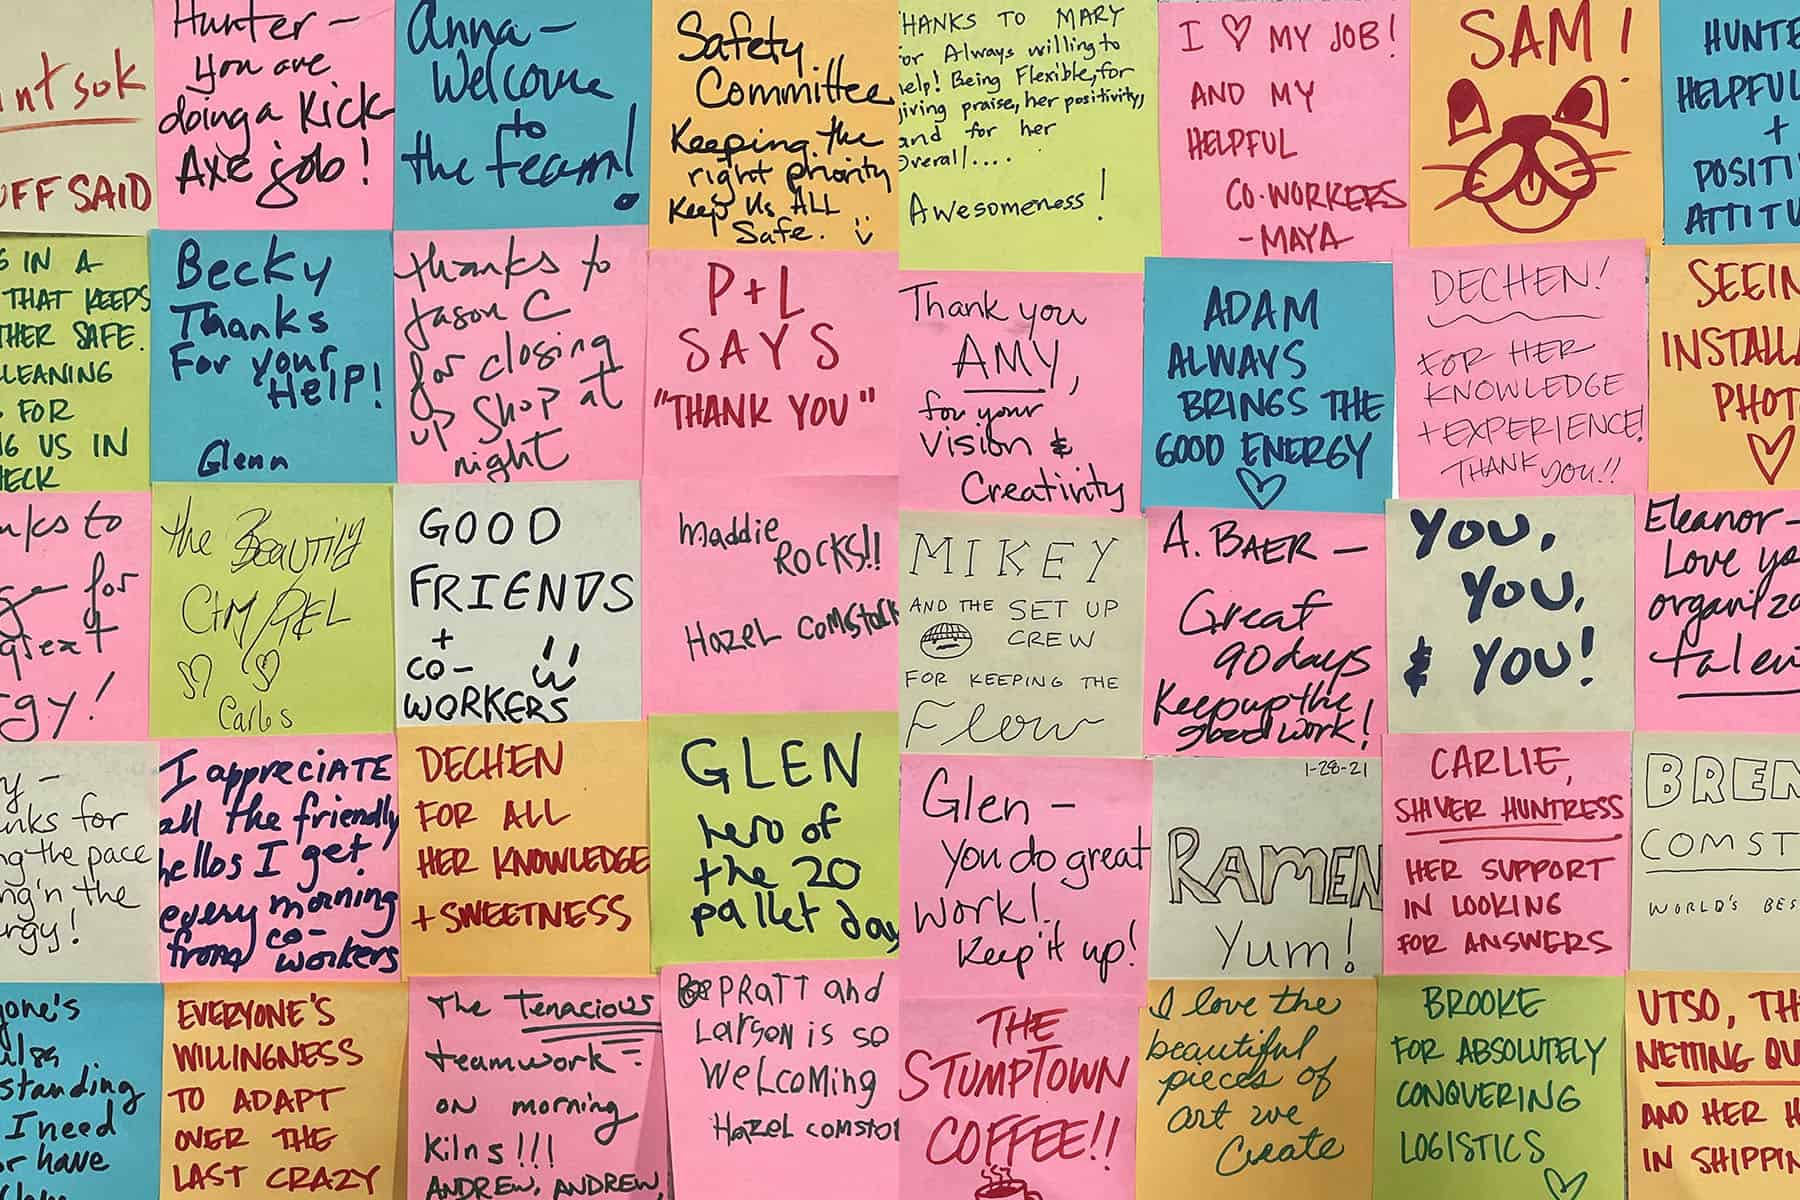 sok
SAID
Hunter –
you are
doing a Kick
Axe job!
Anna –
Welcome
to
the team!
Safety
Committee
Keeping the
right priority
Keep us ALL
Safe.
THANKS TO MARY
for Always willing to
help! Being Flexible, for
giving praise, her positivity,
and for her
overall....
Awesomeness!
I ♡ MY JOB!
AND MY
HELPFUL
CO-WORKERS
- MAYA
SAM!
HUNTE
HELPFUL
+
POSITI
ATTITU
IN A
THAT KEEPS
THER SAFE.
LEANING
FOR
US IN
HECK
Becky
Thanks
For your
HELP!
Glenn
thanks to
Jason C
for closing
up shop at
night
P+L
SAYS
"THANK YOU"
Thank you
AMY,
for your
Vision &
Creativity
ADAM
ALWAYS
BRINGS THE
GOOD ENERGY
♡
DECHEN!
FOR HER
KNOWLEDGE
+ EXPERIENCE!
THANK YOU!!
SEEIN
INSTALLA
PHOT
♡
nks to
for
gy!
the Beautiful
Carlos
GOOD
FRIENDS
+
CO-
WORKERS
Maddie
ROCKS!!
Hazel Comstock
MIKEY
AND THE SET UP
CREW
FOR KEEPING THE
Flow
A. BAER –
Great
90 days
Keep up the
good work!
YOU,
YOU,
& YOU!
Eleanor –
Love yo
organiza
talen
y –
anks for
ng the pace
ng'n the
ergy!
I appreciate
all the friendly
hellos I get
every morning
from co-
workers
DECHEN
FOR ALL
HER KNOWLEDGE
+ SWEETNESS
GLEN
hero of
the 20
pallet day
Glen –
you do great
work!
Keep it up!
1-28-21
RAMEN
Yum!
CARLIE,
SHIVER HUNTRESS
HER SUPPORT
IN LOOKING
FOR ANSWERS
BREN
COMST
WORLD'S BES
yone's
standing
I need
or have
EVERYONE'S
WILLINGNESS
TO ADAPT
OVER THE
LAST CRAZY
The Tenacious
teamwork
on morning
Kilns!!!
ANDREW, ANDREW,
PRATT and
Larson is so
Welcoming
Hazel comsto
THE
STUMPTOWN
COFFEE!!
I love the
beautiful
pieces of
art we
Create
BROOKE
FOR ABSOLUTELY
CONQUERING
LOGISTICS
♡
UTSO, TH
NETTING QU
AND HER H
IN SHIPPIN